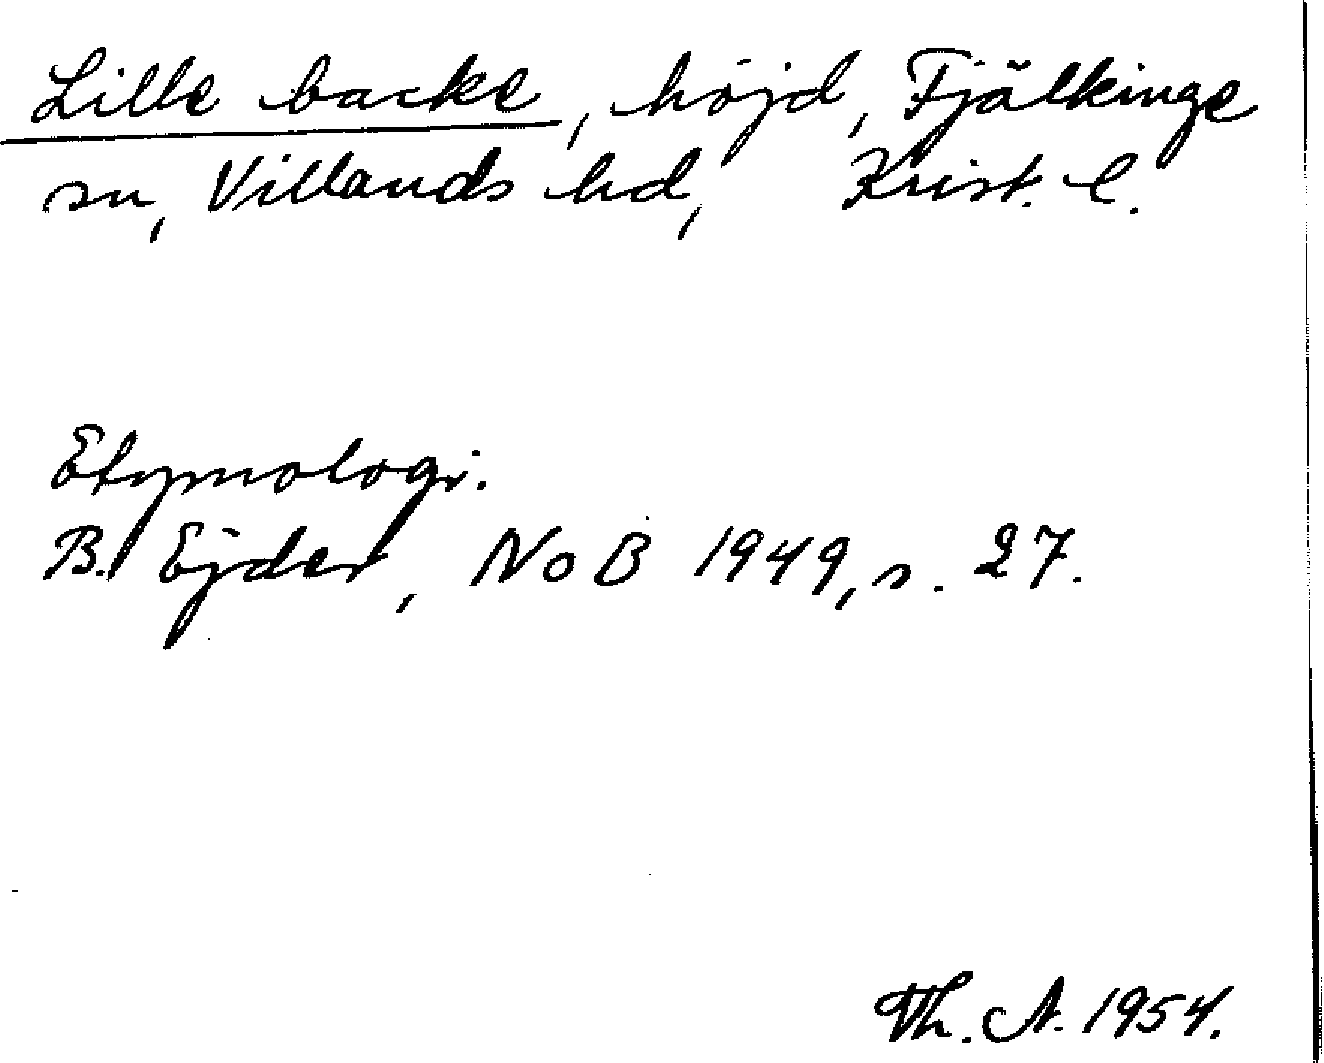 Lille backe, höjd, Fjälkinge
sn, Villands hd, Krist. l.
Etymologi.
B. Ejder, NoB 1949, s. 27.
Th. A. 1954.